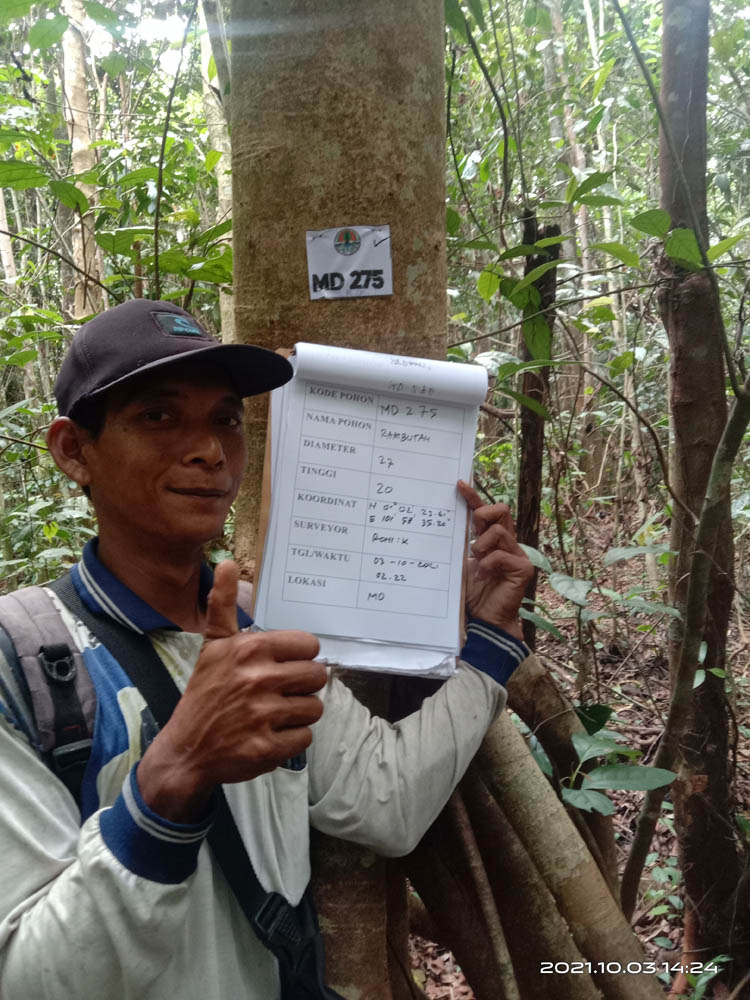 MD 275
KODE POHON MD 275
NAMA POHON RAMBUTAN
DIAMETER 27
TINGGI 20
KOORDINAT N 01° 02' 23.61"
E 101° 58' 35.20"
SURVEYOR ROMI.K
TGL/WAKTU 03-10-2021
02.22
LOKASI MD
2021.10.03 14:24